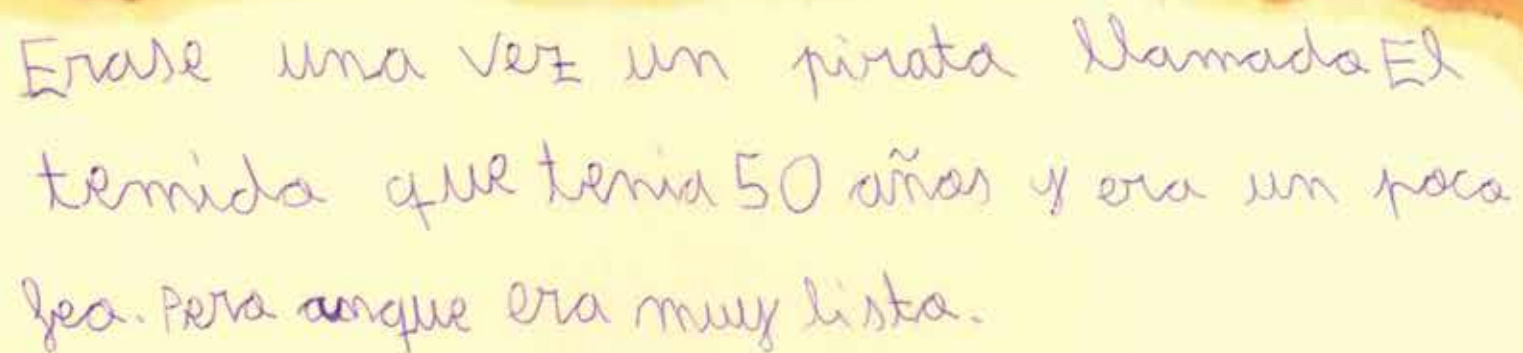 Erase una vez un pirata llamado El
temido que tenia 50 años y era un poco
feo. Pero anque era muy listo.